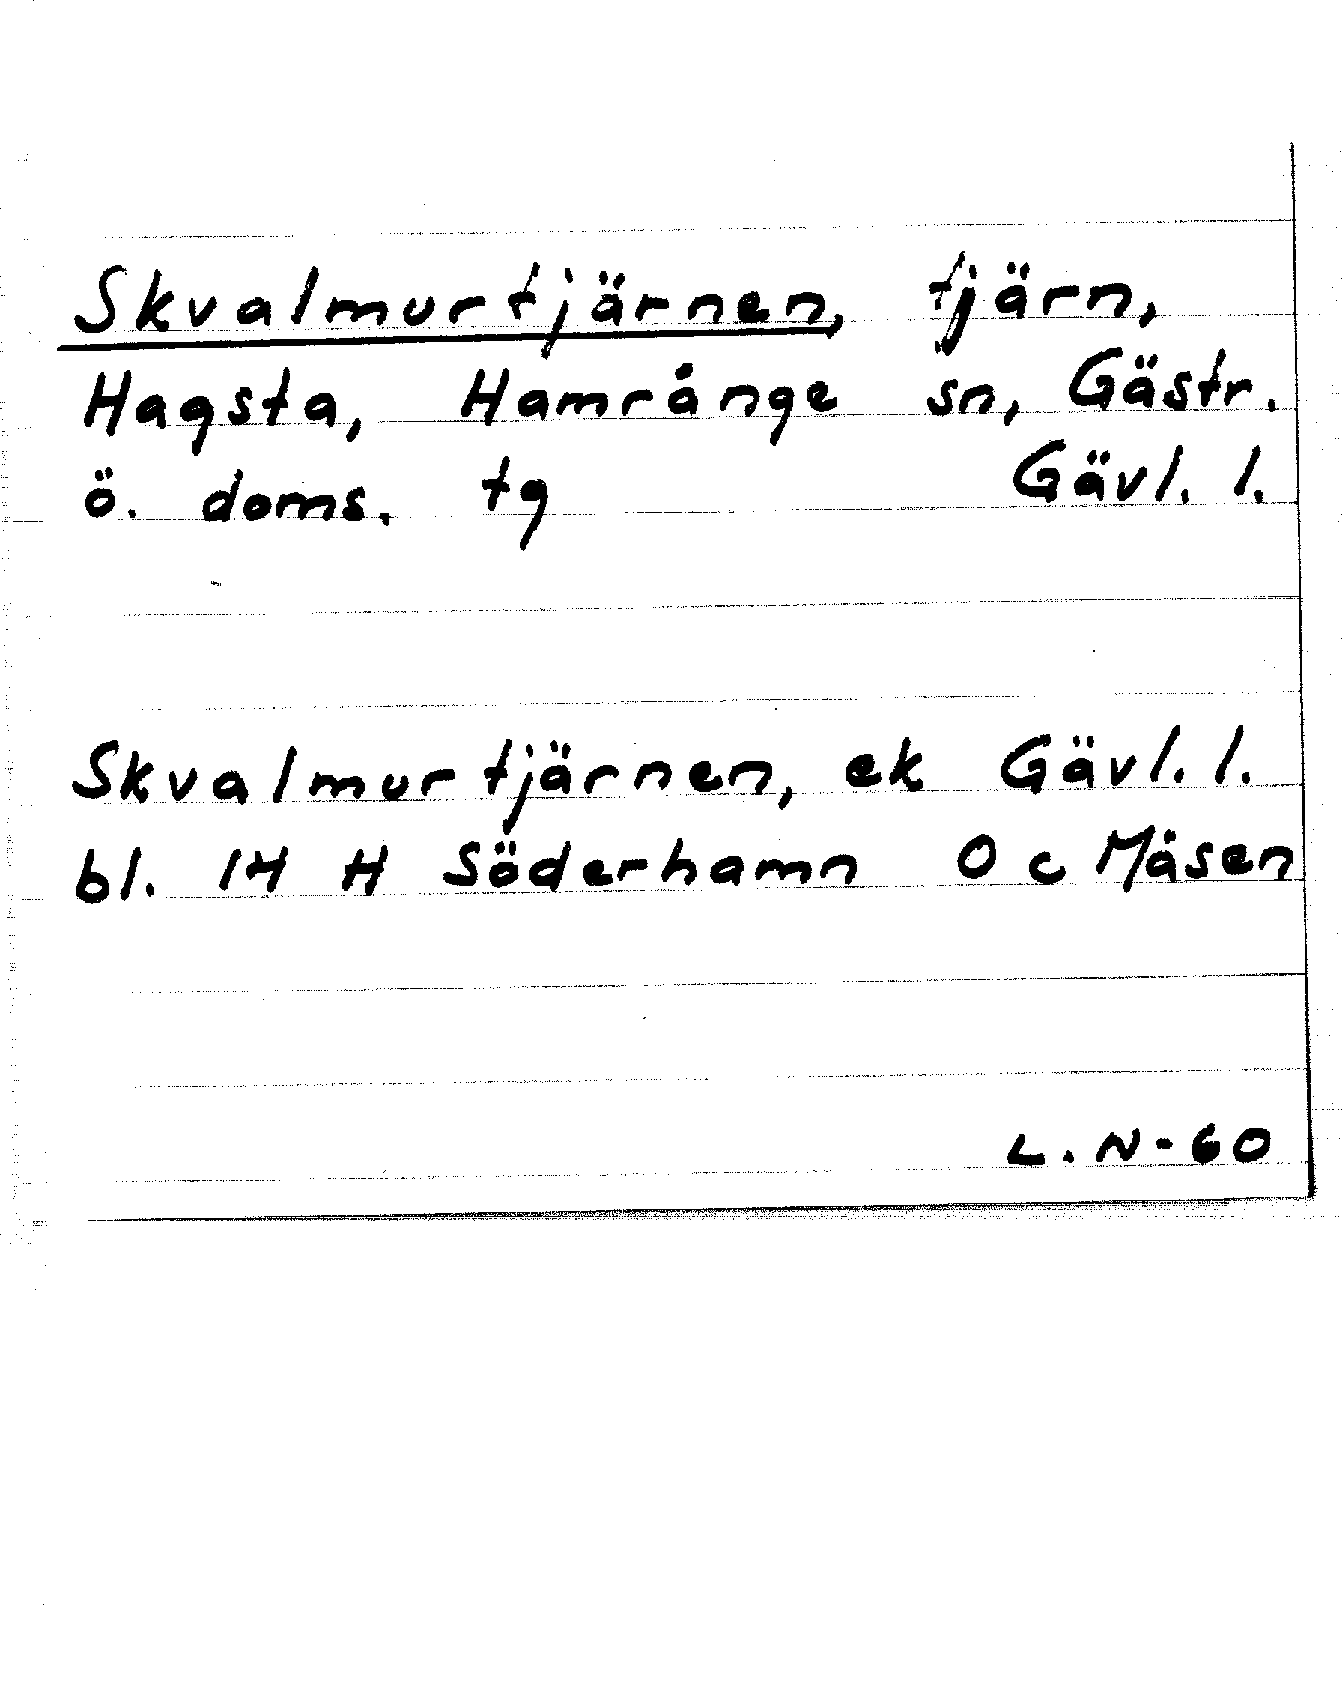 Skvalmurtjärnen, tjärn,
Hagsta, Hamrånge sn, Gästr.
ö. doms. tg Gävl. l.
Skvalmurtjärnen, ek Gävl. l.
bl. 14 H Söderhamn 0 c Måsen
L. N-60